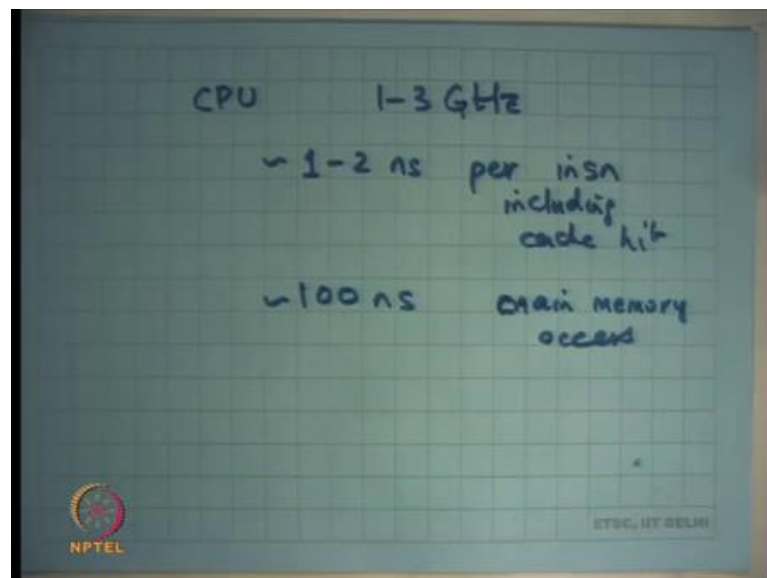 CPU 1-3 GHz
~ 1-2 ns per insn
including
cache hit
~100 ns main memory
access
NPTEL
ETSC, IIT DELHI